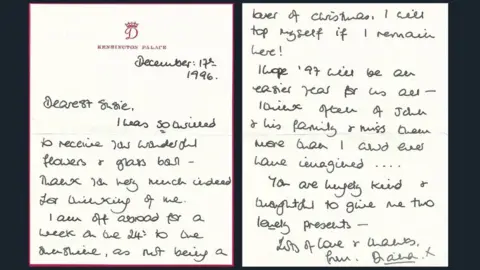 D
KENSINGTON PALACE
December: 17th
1996.
Dearest Susie,
I was so thrilled
to receive your wonderful
flowers & glass ball -
Thank you very much indeed
for thinking of me.
I am off abroad for a
week on the 24th to the
sunshine, as not being a
lover of christmas, I will
top myself if I remain
here!
I hope '97 will be an
easier year for us all -
I think often of John
& his family & miss them
more than I could ever
have imagined ....
You are hugely kind &
thoughtful to give me two
lovely presents -
Lots of love & thanks,
from Diana. x